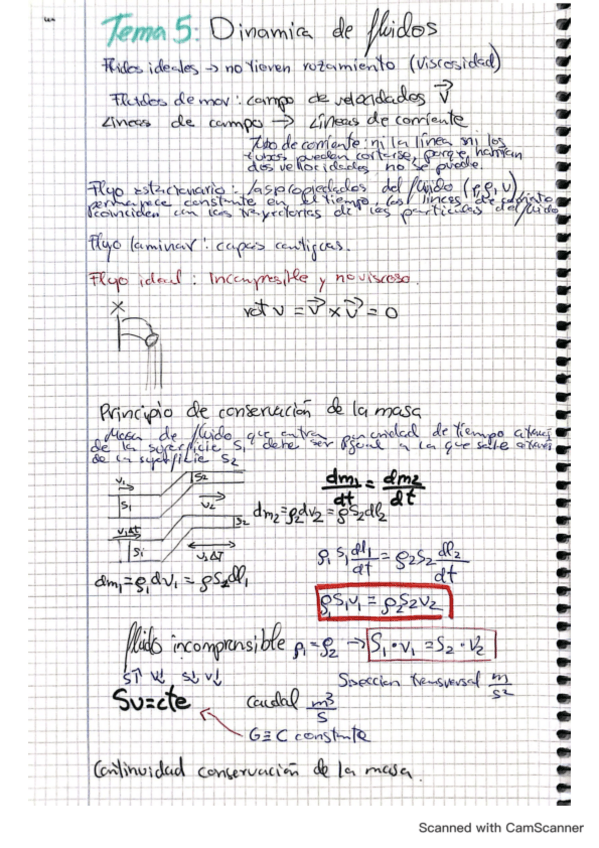 Tema 5: Dinamica de fluidos
Fluidos ideales → no tienen rozamiento (viscosidad)
Fluidos de mov: campo de velocidades V⃗
Líneas de campo → Líneas de corriente
Tubo de corriente: ni la línea ni los
tubos pueden cortarse, porque habrían
dos velocidades no se puede.
Flujo estacionario: las propiedades del fluido (P, ρ, v)
permanece constante en el tiempo, las líneas de corriente
coinciden con las trayectorias de las partículas del fluido
Flujo laminar: capas contiguas.
Flujo ideal: Incompresible y no viscoso.
X
rot v = ∇⃗ x V⃗ = 0
Principio de conservación de la masa
Masa de fluido que entra en unidad de tiempo a través
de la superficie S1 debe ser igual a la que sale a través
de la superficie S2
V1 S1 S2 V2
dm1/dt = dm2/dt
dm2=ρ2dv2=ρS2dl2
V1Δt S1 S2 V2ΔT
ρ1 S1 dl1/dt = ρ2S2 dl2/dt
dm1=ρ1dv1=ρS2dl1
ρ1S1V1 = ρ2S2V2
fluido incomprensible ρ1=ρ2 → S1·v1=S2·V2
S↑ V↓ S↓ V↓
Sección transversal m/s2
Sv=cte
Caudal m3/s
G≡C constante
Continuidad conservación de la masa.
Scanned with CamScanner